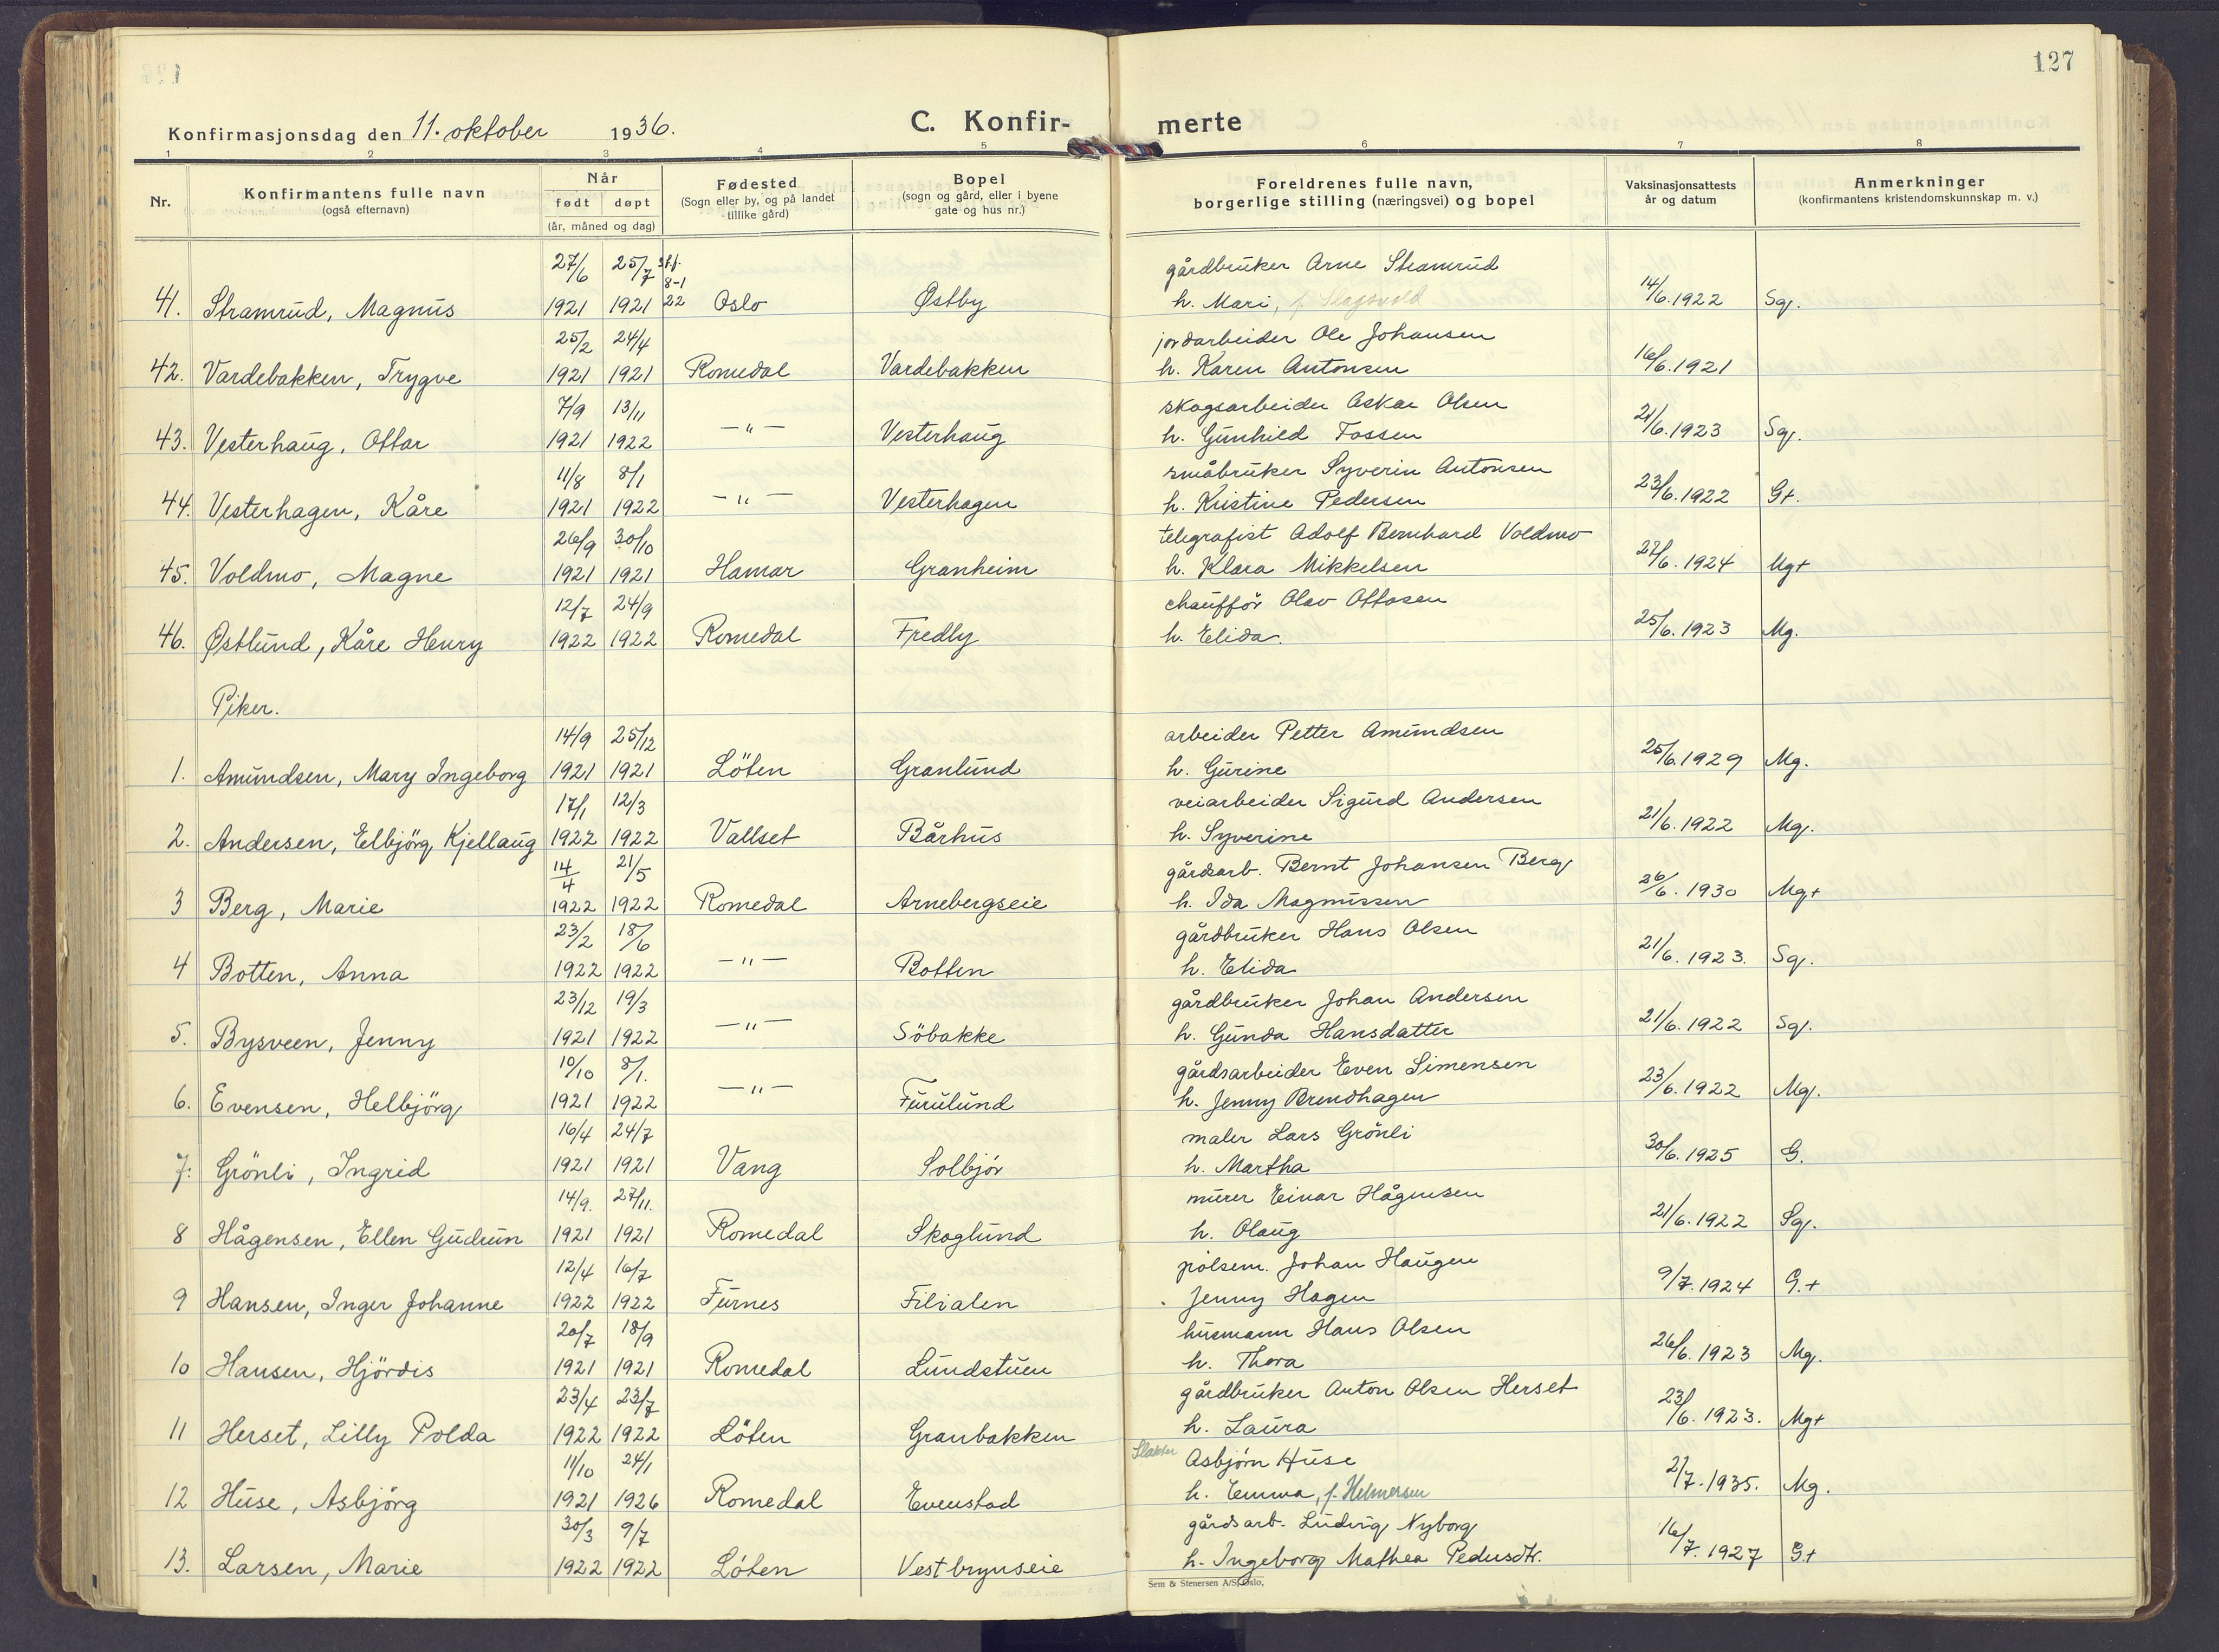 127
Konfirmasjonsdag den 11. oktober 1936.
C. Konfir-merte
1 2 3 4 5 6 7 8
Nr.
Konfirmantens fulle navn
(også efternavn)
Når
født døpt
(år, måned og dag)
Fødested
(Sogn eller by, og på landet
tillike gård)
Bopel
(sogn og gård, eller i byene
gate og hus nr.)
Foreldrenes fulle navn,
borgerlige stilling (næringsvei) og bopel
Vaksinasjonsattests
år og datum
Anmerkninger
(konfirmantens kristendomskunnskap m. v.)
27/6 25/7 8-1 gårdbruker Arne Stramrud
41. Stramrud, Magnus 1921 1921 22 Oslo Østby h. Mari, f. Slagsvold 14/6.1922 Sg.
25/2 24/4 jordarbeider Ole Johansen
42. Vardebakken, Trygve 1921 1921 Romedal Vardebakken h. Karen Antonsen 16/6.1921
7/9 13/11 skogsarbeider Oskar Olsen
43. Vesterhaug, Ottar 1921 1922 —"— Vesterhaug h. Gunhild Fossen 21/6.1923 Sg.
11/8 8/1 småbruker Syverin Antonsen
44. Vesterhagen, Kåre 1921 1922 —"— Vesterhagen h. Kristine Pedersen 23/6.1922 G+.
26/9 30/10 telegrafist Adolf Bernhard Voldmo
45. Voldmo, Magne 1921 1921 Hamar Granheim h. Klara Mikkelsen 27/6.1924 Mg+
12/7 24/9 chauffør Olav Ottosen
46. Østlund, Kåre Henry 1922 1922 Romedal Fredly h. Elida. 25/6.1923 Mg.
Piker.
14/9 25/12 arbeider Petter Amundsen
1. Amundsen, Mary Ingeborg 1921 1921 Löten Granlund h. Gurine 25/6.1929 Mg.
17/1 12/3 veiarbeider Sigurd Andersen
2. Andersen, Elbjörg Kjellaug 1922 1922 Vallset Bårhus h. Syverine 21/6.1922 Mg.
14/4 21/5 gårdsarb. Bernt Johansen Berg
3 Berg, Marie 1922 1922 Romedal Arnebergseie h. Ida Magnussen 26/6.1930 Mg+
23/2 18/6 gårdbruker Hans Olsen
4 Botten, Anna 1922 1922 —"— Botten h. Elida 21/6.1923. Sg.
23/12 19/3 gårdbruker Johan Andersen
5. Bysveen, Jenny 1921 1922 —"— Söbakke h. Gunda Hansdatter 21/6.1922 Sg.
10/10 8/1. gårdsarbeider Even Simensen
6. Evensen, Helbjörg 1921 1922 —"— Furulund h. Jenny Brendhagen 23/6.1922 Mg.
16/4 24/7 maler Lars Grönli
7. Grönli, Ingrid 1921 1921 Vang Solbjör h. Martha 30/6.1925 G.
14/9. 27/11. murer Einar Hågensen
8 Hågensen, Ellen Gudrun 1921 1921 Romedal Skoglund h. Olaug 21/6.1922 Sg.
12/4 16/7 pölsem. Johan Haugen
9 Hansen, Inger Johanne 1922 1922 Furnes Filialen Jenny Hagen 9/7.1924 G.+
20/7 18/9 husmann Hans Olsen
10 Hansen, Hjördis 1921 1921 Romedal Lundstuen h. Thora 26/6.1923 Mg.
23/4 23/7 gårdbruker Anton Olsen Herset
11 Herset, Lilly Polda 1922 1922 Löten Granbakken h. Laura 23/6.1923. Mg+
11/10 24/1 Slakter Asbjørn Huse
12 Huse, Asbjörg 1921 1926 Romedal Evenstad h. Emma, f. Helmersen 2/7.1935. Mg.
30/3 9/7 gårdsarb. Ludvig Nyborg
13. Larsen, Marie 1922 1922 Löten Vestbrynseie h. Ingeborg Mathea Pedersdtr. 16/7.1927 G+
Sem & Stenersen A/S, Oslo,